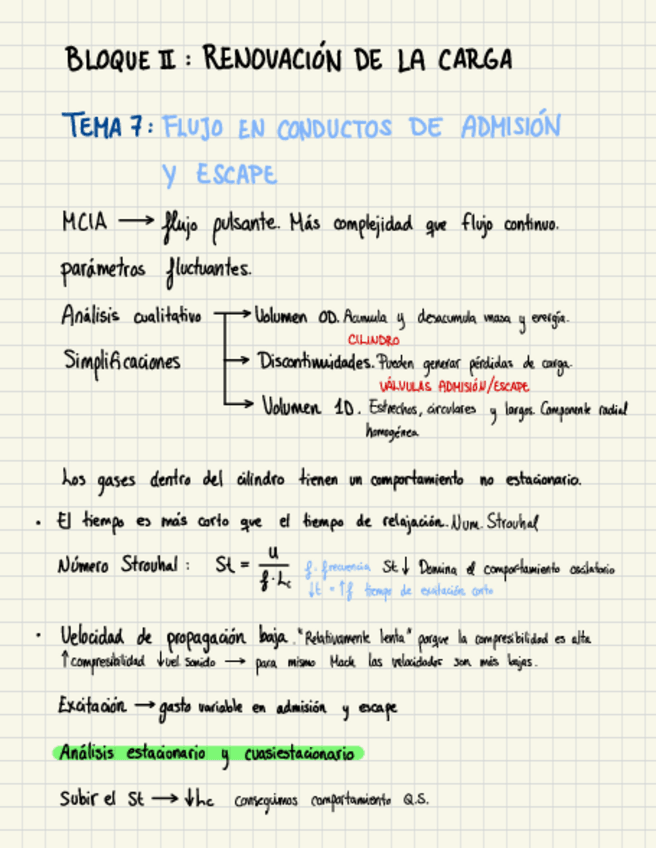 BLOQUE II : RENOVACIÓN DE LA CARGA
TEMA 7: FLUJO EN CONDUCTOS DE ADMISIÓN
Y ESCAPE
MCIA → flujo pulsante. Más complejidad que flujo continuo.
parámetros fluctuantes.
Análisis cualitativo → Volumen 0D. Acumula y desacumula masa y energía.
CILINDRO
Simplificaciones → Discontinuidades. Pueden generar pérdidas de carga.
VÁLVULAS ADMISIÓN/ESCAPE
→ Volumen 1D. Estrechos, circulares y largos. Componente radial
homogénea
Los gases dentro del cilindro tienen un comportamiento no estacionario.
· El tiempo es más corto que el tiempo de relajación. Num. Strouhal
Número Strouhal : St = u / f·Lc f. frecuencia St ↓ Domina el comportamiento oscilatorio
↓t = ↑f tiempo de excitación corto
· Velocidad de propagación baja. "Relativamente lenta" porque la compresibilidad es alta
↑ compresibilidad ↓ vel. sonido → para mismo Mach las velocidades son más bajas.
Excitación → gasto variable en admisión y escape
Análisis estacionario y cuasiestacionario
Subir el St → ↓Lc conseguimos comportamiento Q.S.